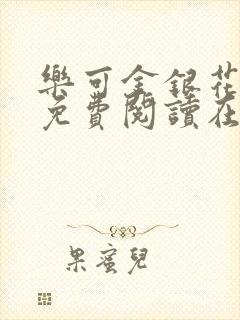 樂可金銀花
免費閱讀在
果蜜兒